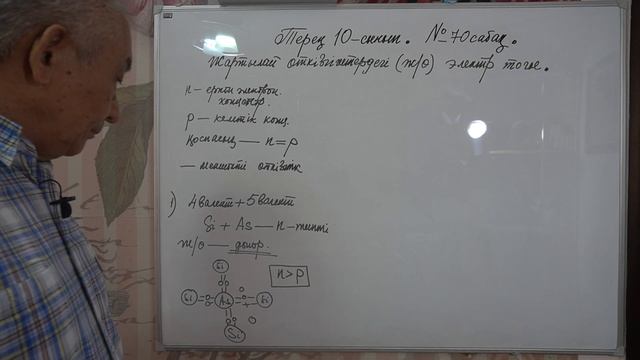 Терең 10-сынып. №70 сабақ.
Жартылай өткізгіштердегі (ж/ө) электр тогы.
n — еркін электрон.
концентр.
p — кемтік конц.
Қоспасыз — n=p
— меншікті өткізгіш
1) 4 валент + 5 валент
Si + As — n-типті
ж/ө — донор.
Si
n>p
Si As Si
Si